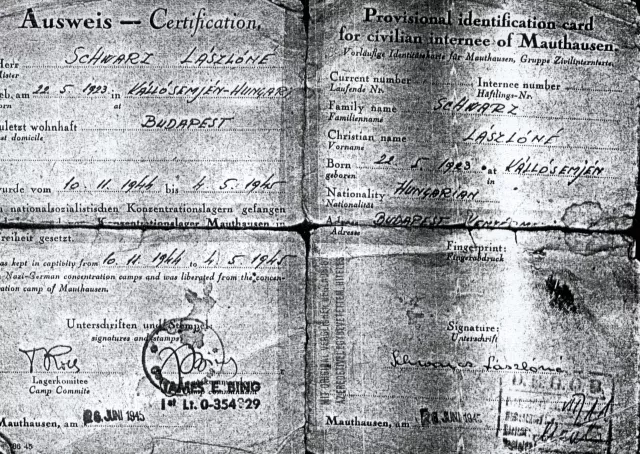 Ausweis — Certification.
Herr SCHWARZ LÁSZLÓNÉ
Mister
geb. am 22. 5. 1923. in KÁLLÓSEMJÉN-HUNGARY
born at
zuletzt wohnhaft BUDAPEST
last domicile
wurde vom 10. 11. 1944 bis 4. 5. 1945
in nationalsozialistischen Konzentrationslagern gefangen
Konzentrationslager Mauthausen in
Freiheit gesetzt.
was kept in captivity from 10. 11. 1944 to 4. 5. 1945
in Nazi-German concentration camps and was liberated from the concen-
tration camp of Mauthausen.
Unterschriften und Stempel:
signatures and stamps:
Lagerkomitee
Camp Committe
JAMES E. RING
1st Lt. 0-354829
Mauthausen, am 26. JUNI 1945
Provisional identification card
for civilian internee of Mauthausen.
Vorläufige Identitätskarte für Mauthausen, Gruppe Zivilinternierte.
Current number Internee number
Laufende Nr. Häftlings-Nr.
Family name SCHWARZ
Familienname
Christian name LÁSZLÓNÉ
Vorname
Born 22. 5. 1923 at KÁLLÓSEMJÉN
geboren in
Nationality HUNGARIAN
Nationalität
BUDAPEST
Adresse
Fingerprint:
Fingerabdruck
Signature:
Unterschrift
Schwarz Lászlóné
D.E.G.O.B.
Mauthausen, am JUNI 1945